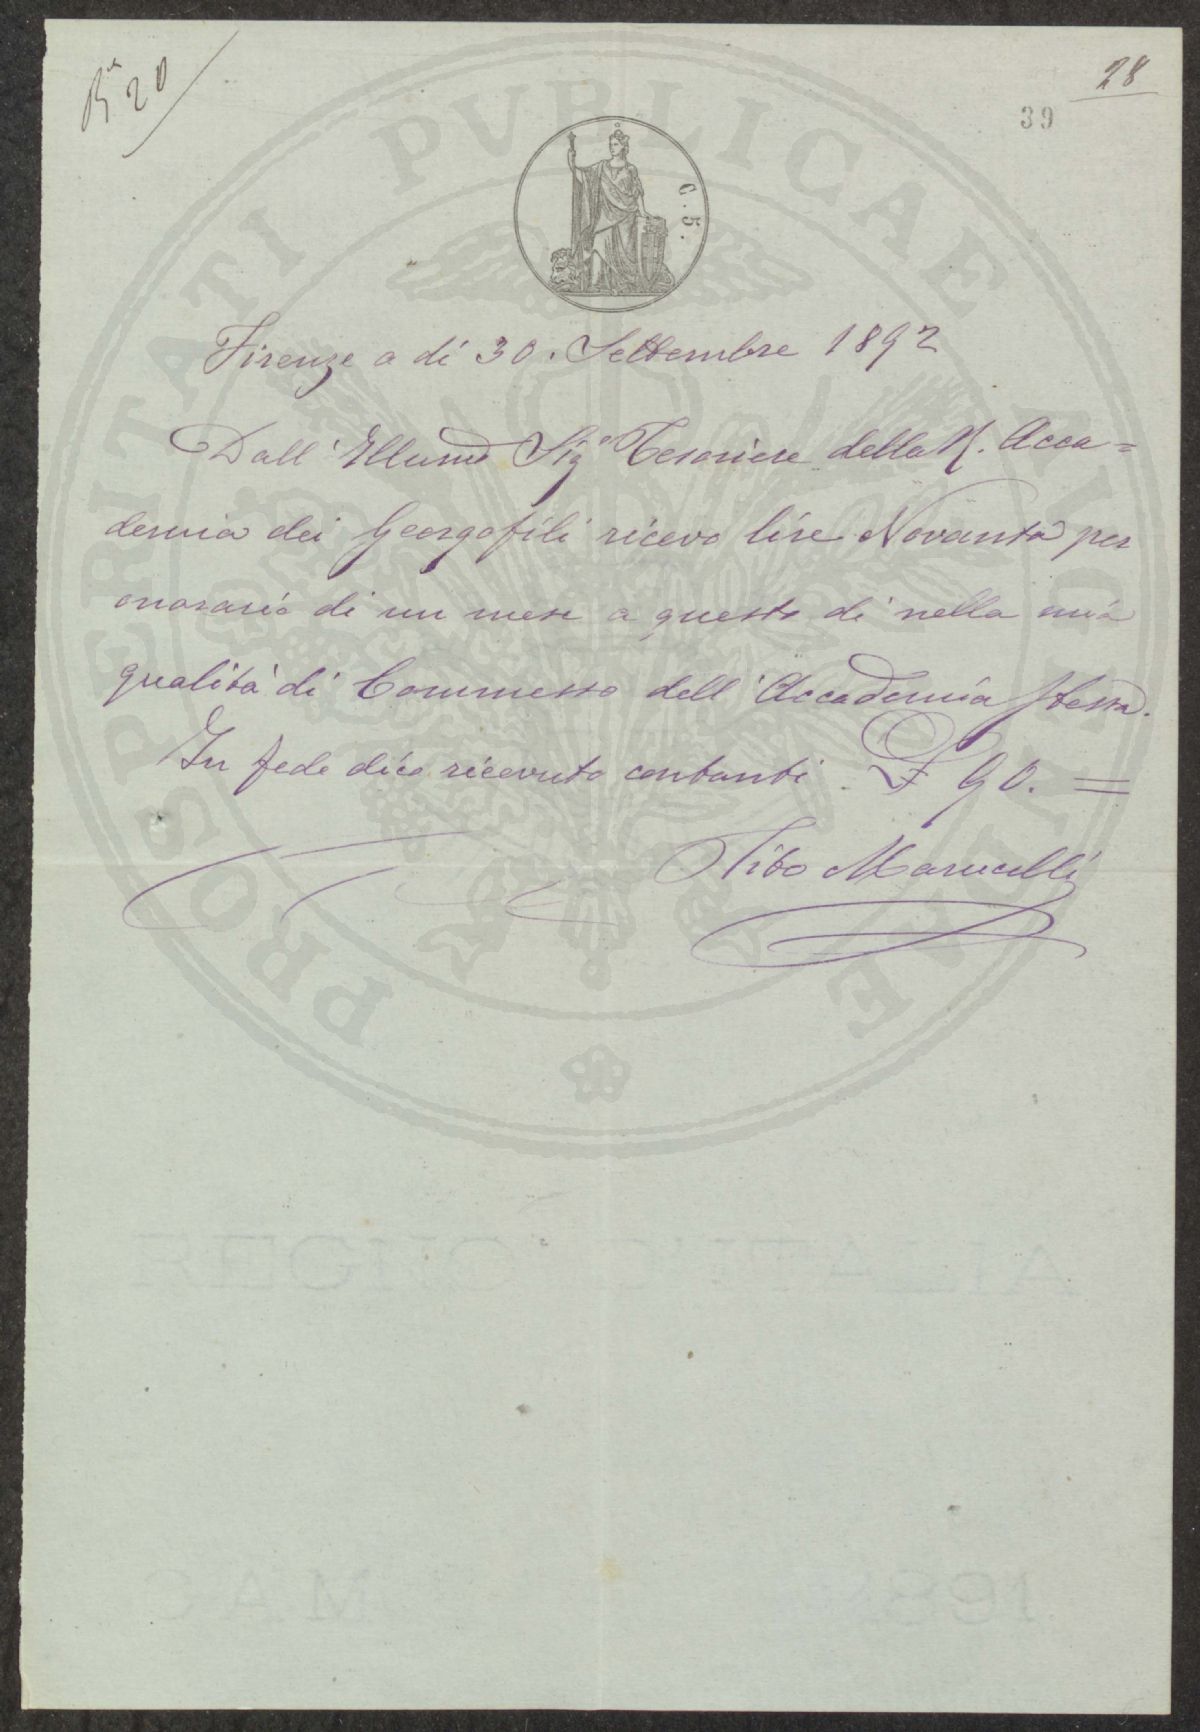 Rª 20
28
39
C. 5.
Firenze a dí 30. Settembre 1892
Dall' Illumo Sigr Tesoriere della R. Acca=
demia dei Georgofili ricevo lire Novanta per
onorario di un mese a questo dí nella mia
qualità di Commesso dell' Accademia stessa.
In fede dico ricevuto contanti £ 90. =
Tito Marucelli
PROSPERITATI PVBLICAE AVGENDAE